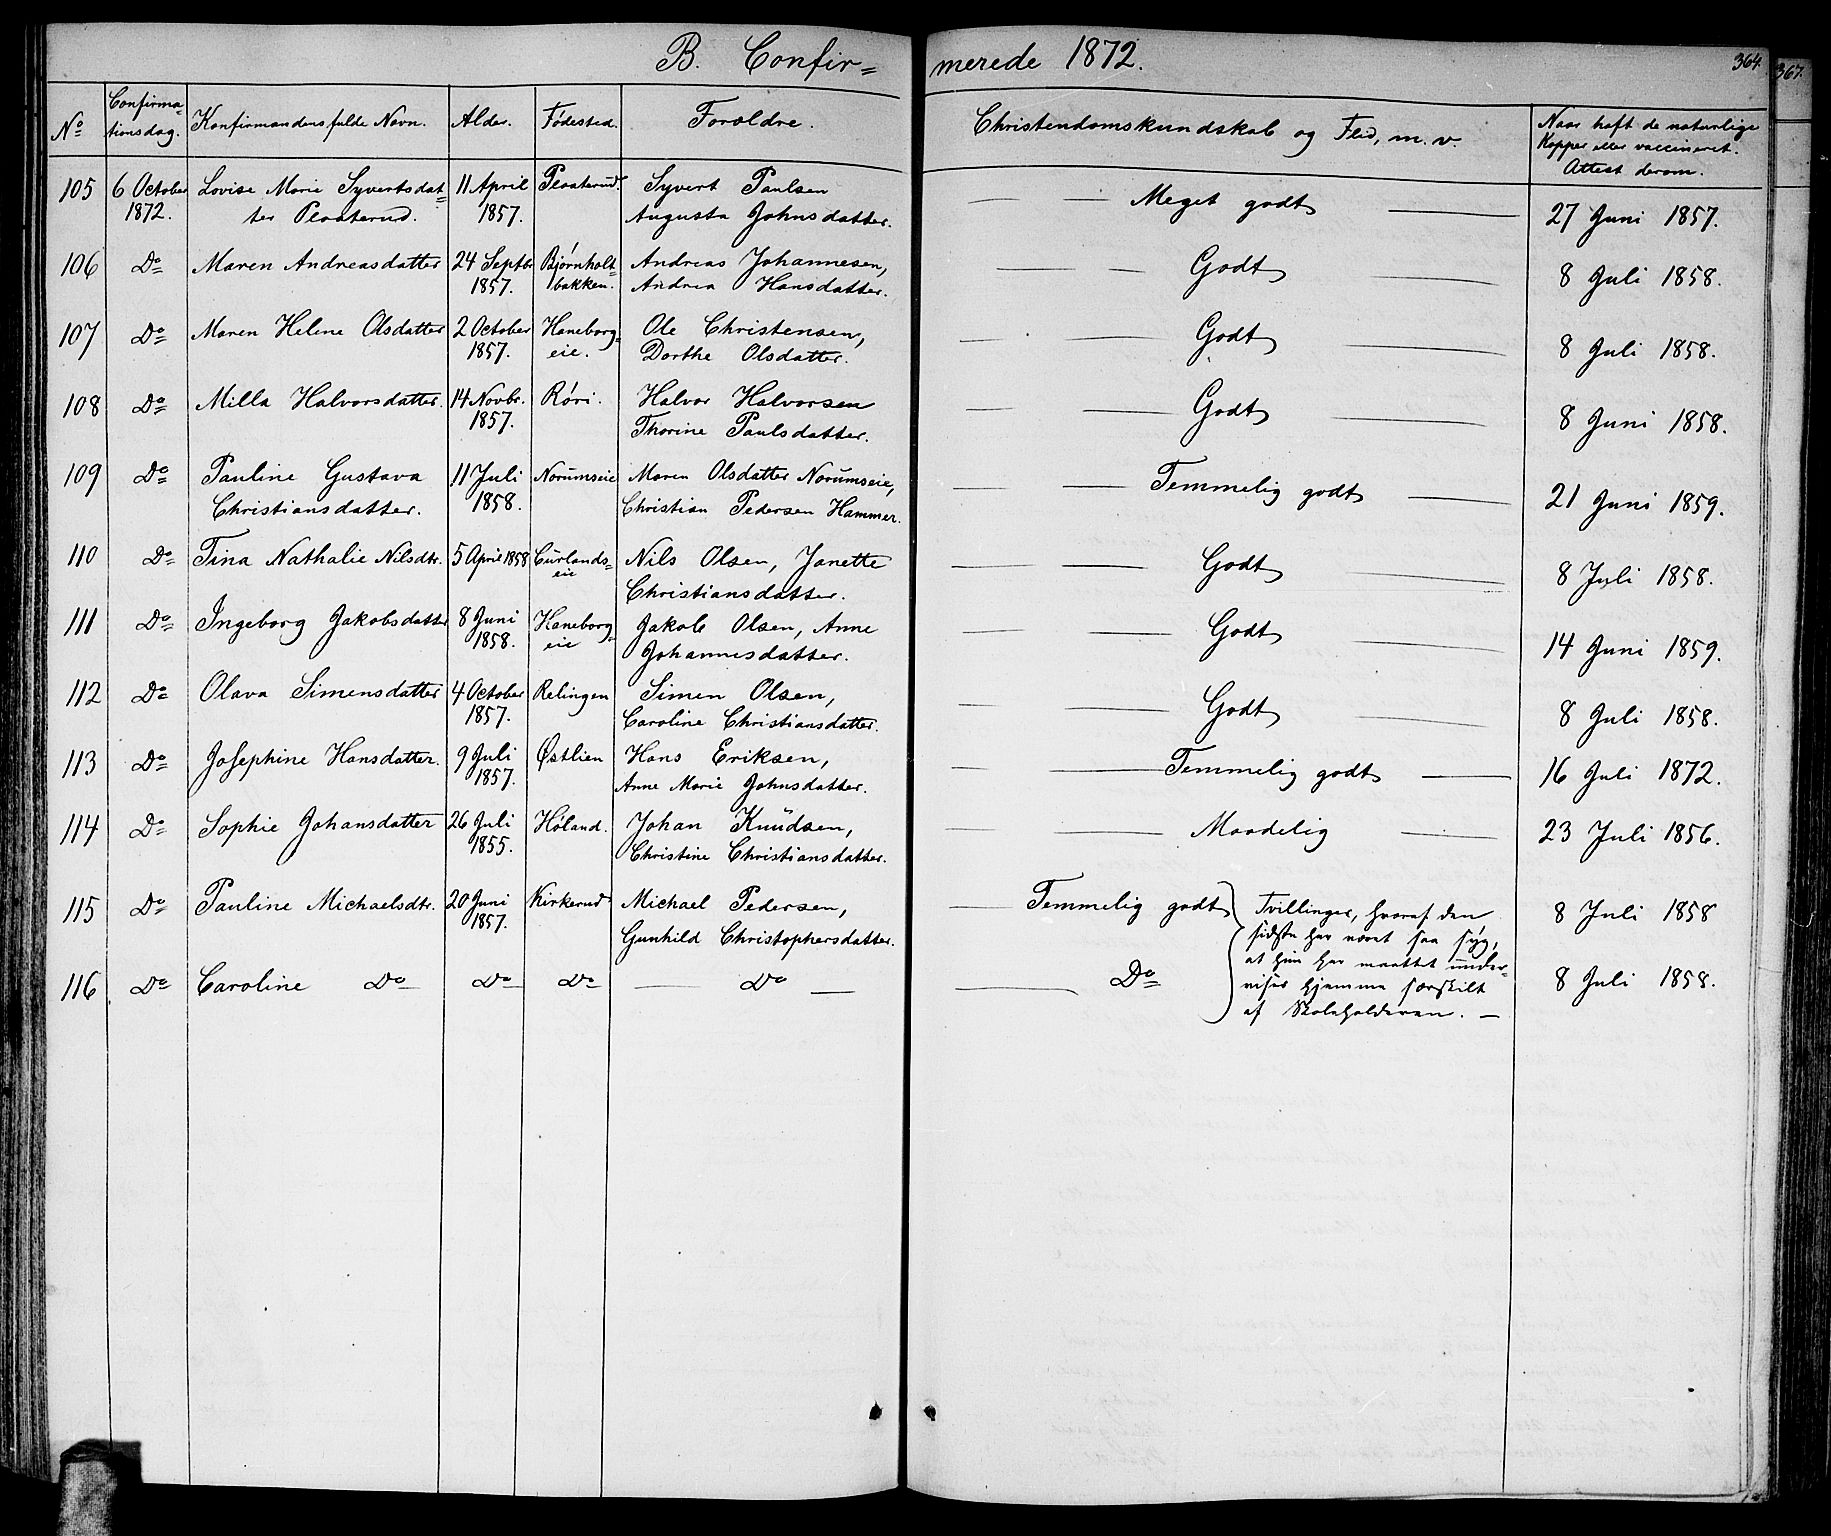 B. Confir= merede 1872. 364. 367.
No Confirma= tionsdag. Konfirmandens fulde Navn. Alder. Fødested. Forældre. Christendomskundskab og Flid, m. v. Naar haft de naturlige Kopper eller vaccineret. Attest derom.
105 6 October Lovise Marie Syvertsdat= 11 April Plaaterud. Syvert Paulsen Meget godt
1872. ter Plaaterud. 1857. Augusta Johnsdatter. 27 Juni 1857.
106 Do Maren Andreasdatter 24 Septbr Bjørnholt= Andreas Johannesen, Godt
1857. bakken. Andrea Hansdatter. 8 Juli 1858.
107 Do Maren Helene Olsdatter 2 October Haneborg= Ole Christensen, Godt
1857. eie. Dorthe Olsdatter. 8 Juli 1858.
108 Do Milla Halvorsdatter. 14 Novbr. Røri. Halvor Halvorsen Godt
1857. Thorine Paulsdatter. 8 Juni 1858.
109 Do Pauline Gustava 11 Juli Norumseie Maren Olsdatter Norumseie, Temmelig godt
Christiansdatter. 1858. Christian Pedersen Hammer. 21 Juni 1859.
110 Do Tina Nathalie Nilsdtr. 5 April 1858 Curlands= Nils Olsen, Janette Godt
eie Christiansdatter. 8 Juli 1858.
111 Do Ingeborg Jakobsdatter 8 Juni Haneborg= Jakob Olsen, Anne Godt
1858. eie Johannesdatter. 14 Juni 1859.
112 Do Olava Simensdatter 4 October Relingen Simen Olsen, Godt
1857. Caroline Christiansdatter. 8 Juli 1858.
113 Do Josephine Hansdatter. 9 Juli Østlien Hans Eriksen, Temmelig godt 16 Juli 1872.
1857. Anne Marie Johnsdatter.
114 Do Sophie Johansdatter 26 Juli Høland. Johan Knudsen, Maadelig 23 Juli 1856.
1855. Christine Christiansdatter.
115 Do Pauline Michaelsdtr. 20 Juni Kirkerud Michael Pedersen, Temmelig godt Tvillinger, hvoraf den 8 Juli 1858
1857. Gunhild Christophersdatter. sidste har været saa syg,
at hun har maattet under=
116 Do Caroline Do Do Do Do Do vises hjemme særskilt 8 Juli 1858.
af Skoleholderen.